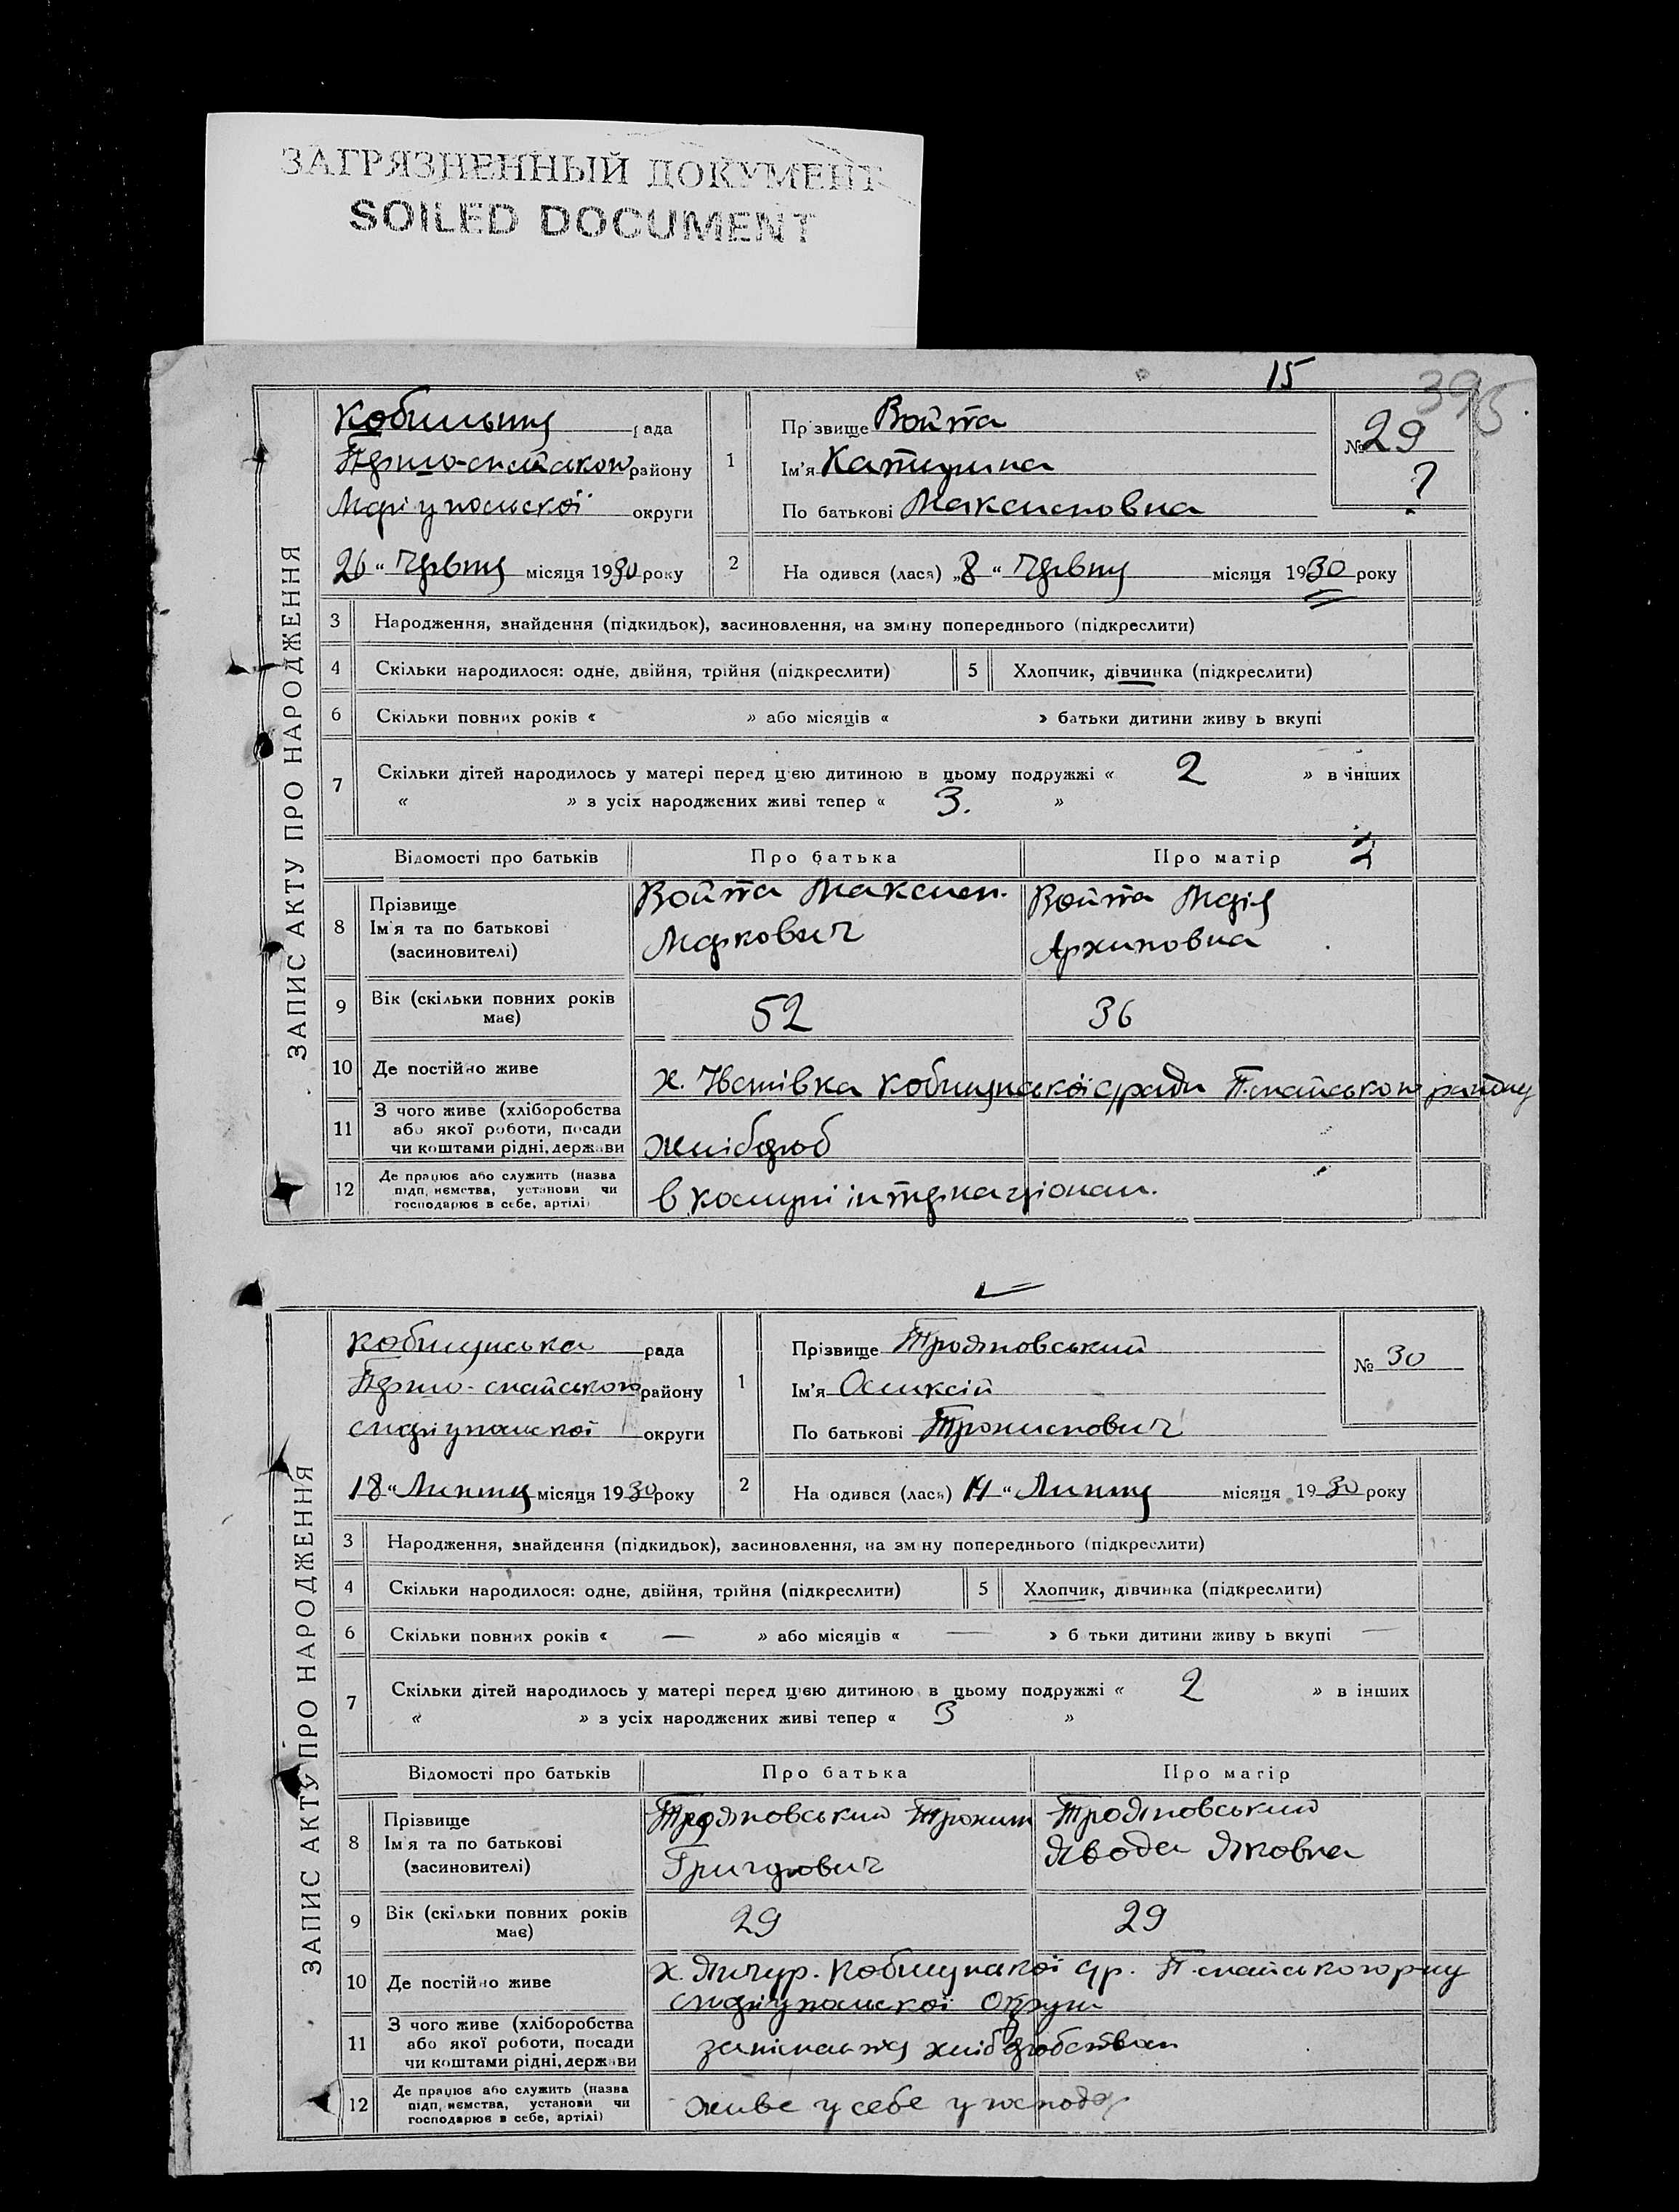 ЗАГРЯЗНЕННЫЙ ДОКУМЕНТ
SOILED DOCUMENT
15
395
ЗАПИС АКТУ ПРО НАРОДЖЕННЯ
рада
району
Маріупольскої округи
26 " Червня місяця 1930 року
1 Прізвище Войта
Ім'я Катерина
По батькові Максимовна
№ 29
?
2 На одився (лася) „8 " Червня місяця 1930 року
3 Народження, знайдення (підкидьок), засиновлення, на зміну попереднього (підкреслити)
4 Скільки народилося: одне, двійня, трійня (підкреслити) 5 Хлопчик, дівчинка (підкреслити)
6 Скільки повних років « » або місяців « » батьки дитини живу ь вкупі
7 Скільки дітей народилось у матері перед цією дитиною в цьому подружжі « 2 » в інших
« » з усіх народжених живі тепер « 3. »
Відомості про батьків Про батька Про матір
8 Прізвище
Ім'я та по батькові
(засиновителі)
Войта Максим.
Маркович
Войта Марія
Архиповна
9 Вік (скільки повних років
має) 52 36
10 Де постійно живе х. Кобилунської с/ради П.-спаського району
11 З чого живе (хліборобства
або якої роботи, посади
чи коштами рідні, держави
хлібороб
12 Де працює або служить (назва
підп, иємства, установи чи
господарює в себе, артілі)
в комуні інтернаціонал.
ЗАПИС АКТУ ПРО НАРОДЖЕННЯ
рада
району
Маріупольскої округи
18 " Липня місяця 1930 року
1 Прізвище Трояновський
Ім'я Оликсій
По батькові Трохимович
№ 30
2 На одився (лася) 14 " Липня місяця 1930 року
3 Народження, знайдення (підкидьок), засиновлення, на зм ну попереднього (підкреслити)
4 Скільки народилося: одне, двійня, трійня (підкреслити) 5 Хлопчик, дівчинка (підкреслити)
6 Скільки повних років « — » або місяців « — » б тьки дитини живу ь вкупі —
7 Скільки дітей народилось у матері перед цією дитиною в цьому подружжі « 2 » в інших
« » з усіх народжених живі тепер « 3 »
Відомості про батьків Про батька Про матір
8 Прізвище
Ім'я та по батькові
(засиновителі)
Трояновський Трохим
Григорович
Трояновський
Яковна
9 Вік (скільки повних років
має) 29 29
10 Де постійно живе
Маріупольскої Округи
11 З чого живе (хліборобства
або якої роботи, посади
чи коштами рідні, держави
хліборобством
12 Де працює або служить (назва
підп, иємства, установи чи
господарює в себе, артілі)
живе у себе у